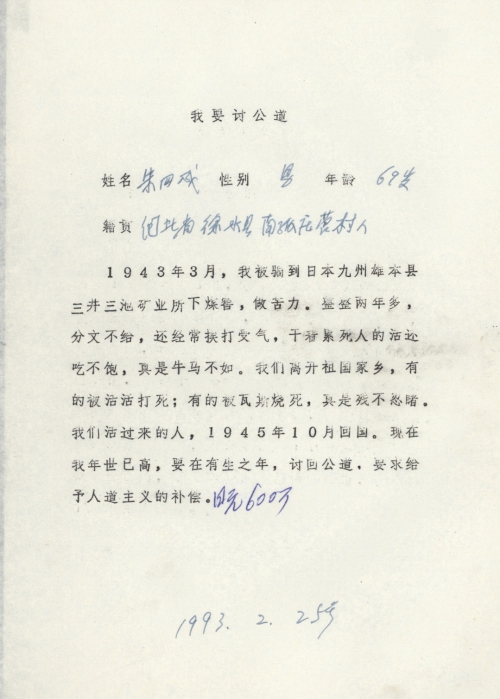 我要讨公道
姓名 朱四成 性别 男 年龄 69岁
籍贯 河北省徐水县南张庄营村人
1943年3月，我被骗到日本九州雄本县
三井三池矿业所下煤窑，做苦力。整整两年多，
分文不给，还经常挨打受气，干着累死人的活还
吃不饱，真是牛马不如。我们离开祖国家乡，有
的被活活打死；有的被瓦斯烧死，真是残不忍睹。
我们活过来的人，1945年10月回国。现在
我年世已高，要在有生之年，讨回公道，要求给
予人道主义的补偿。日元600万
1993. 2. 25号